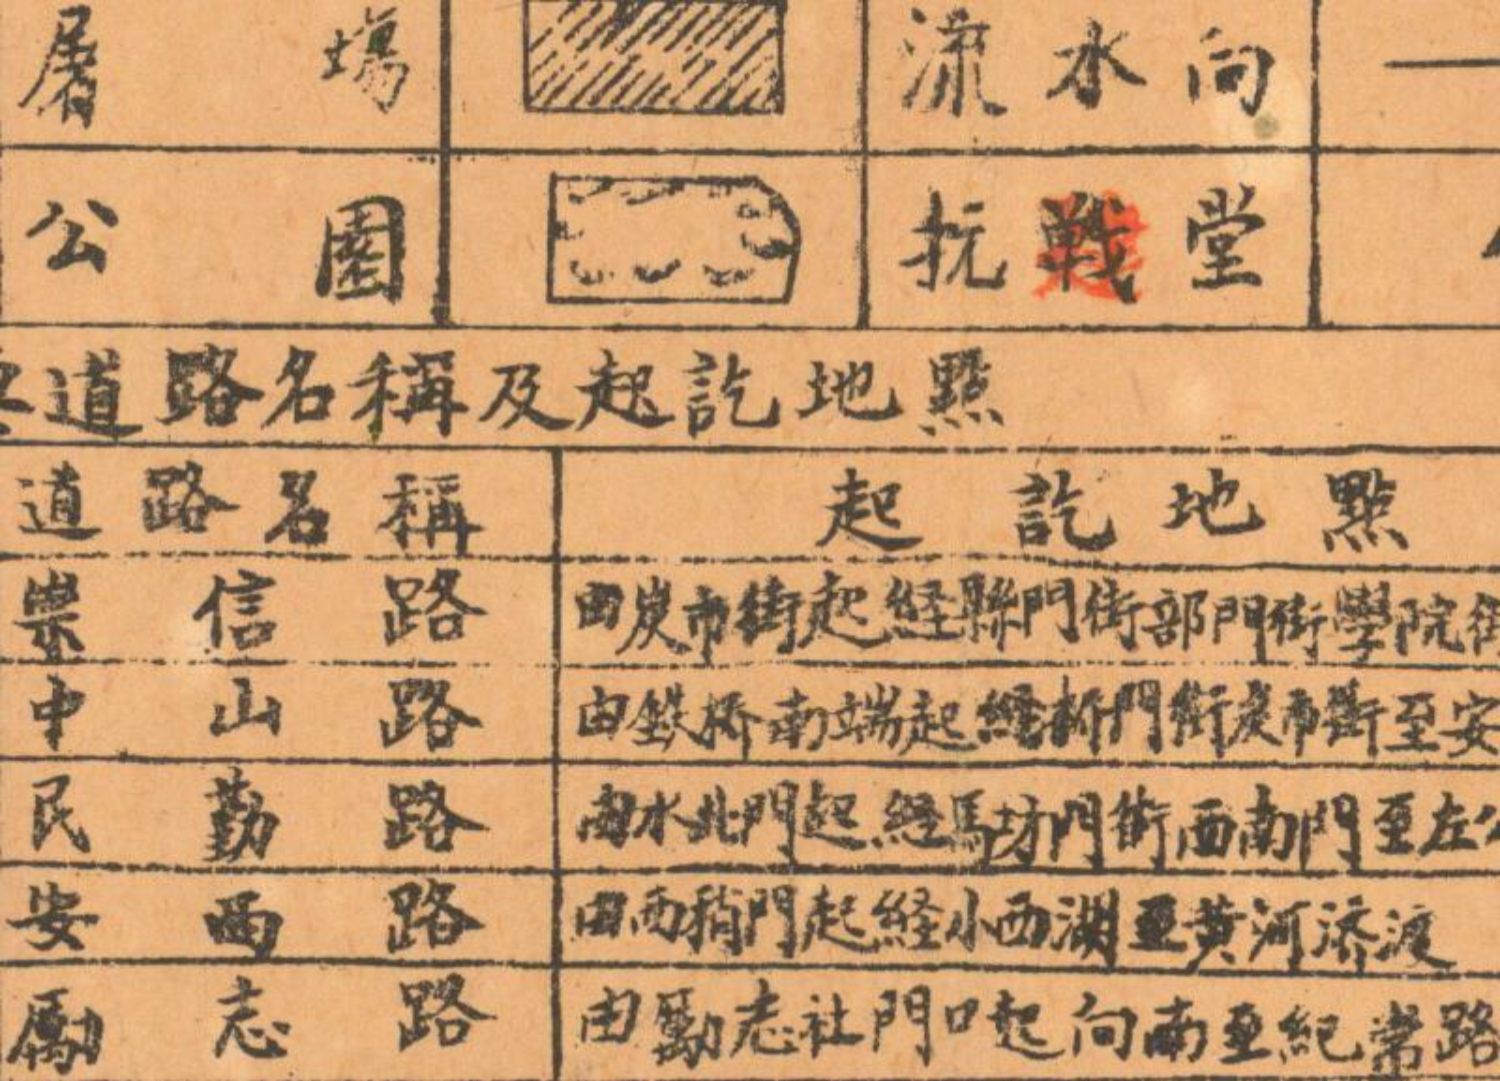 屠場 流水向
公園 抗戰堂
道路名稱及起訖地點
道路名稱 起訖地點
崇信路 由炭市街起經縣門街部門街學院街
中山路 由鉄桥南端起經桥門街炭市街至安
民勤路 由水北門起経馬坊門街西南門至左公
安西路 由西稍門起経小西湖至黄河济渡
勵志路 由勵志社門口起向南至紀常路